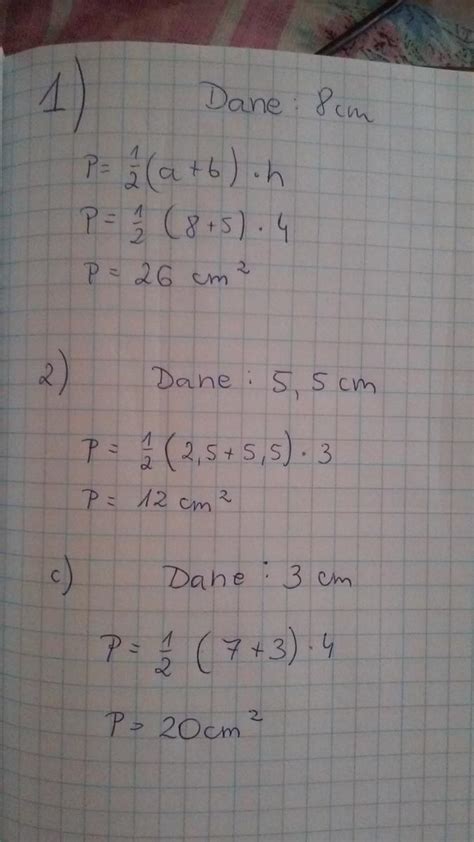 1) Dane : 8cm
P = 1/2 (a + b) · h
P = 1/2 (8 + 5) · 4
P = 26 cm²
2) Dane : 5,5 cm
P = 1/2 (2,5 + 5,5) · 3
P = 12 cm²
c) Dane : 3 cm
P = 1/2 (7 + 3) · 4
P = 20cm²